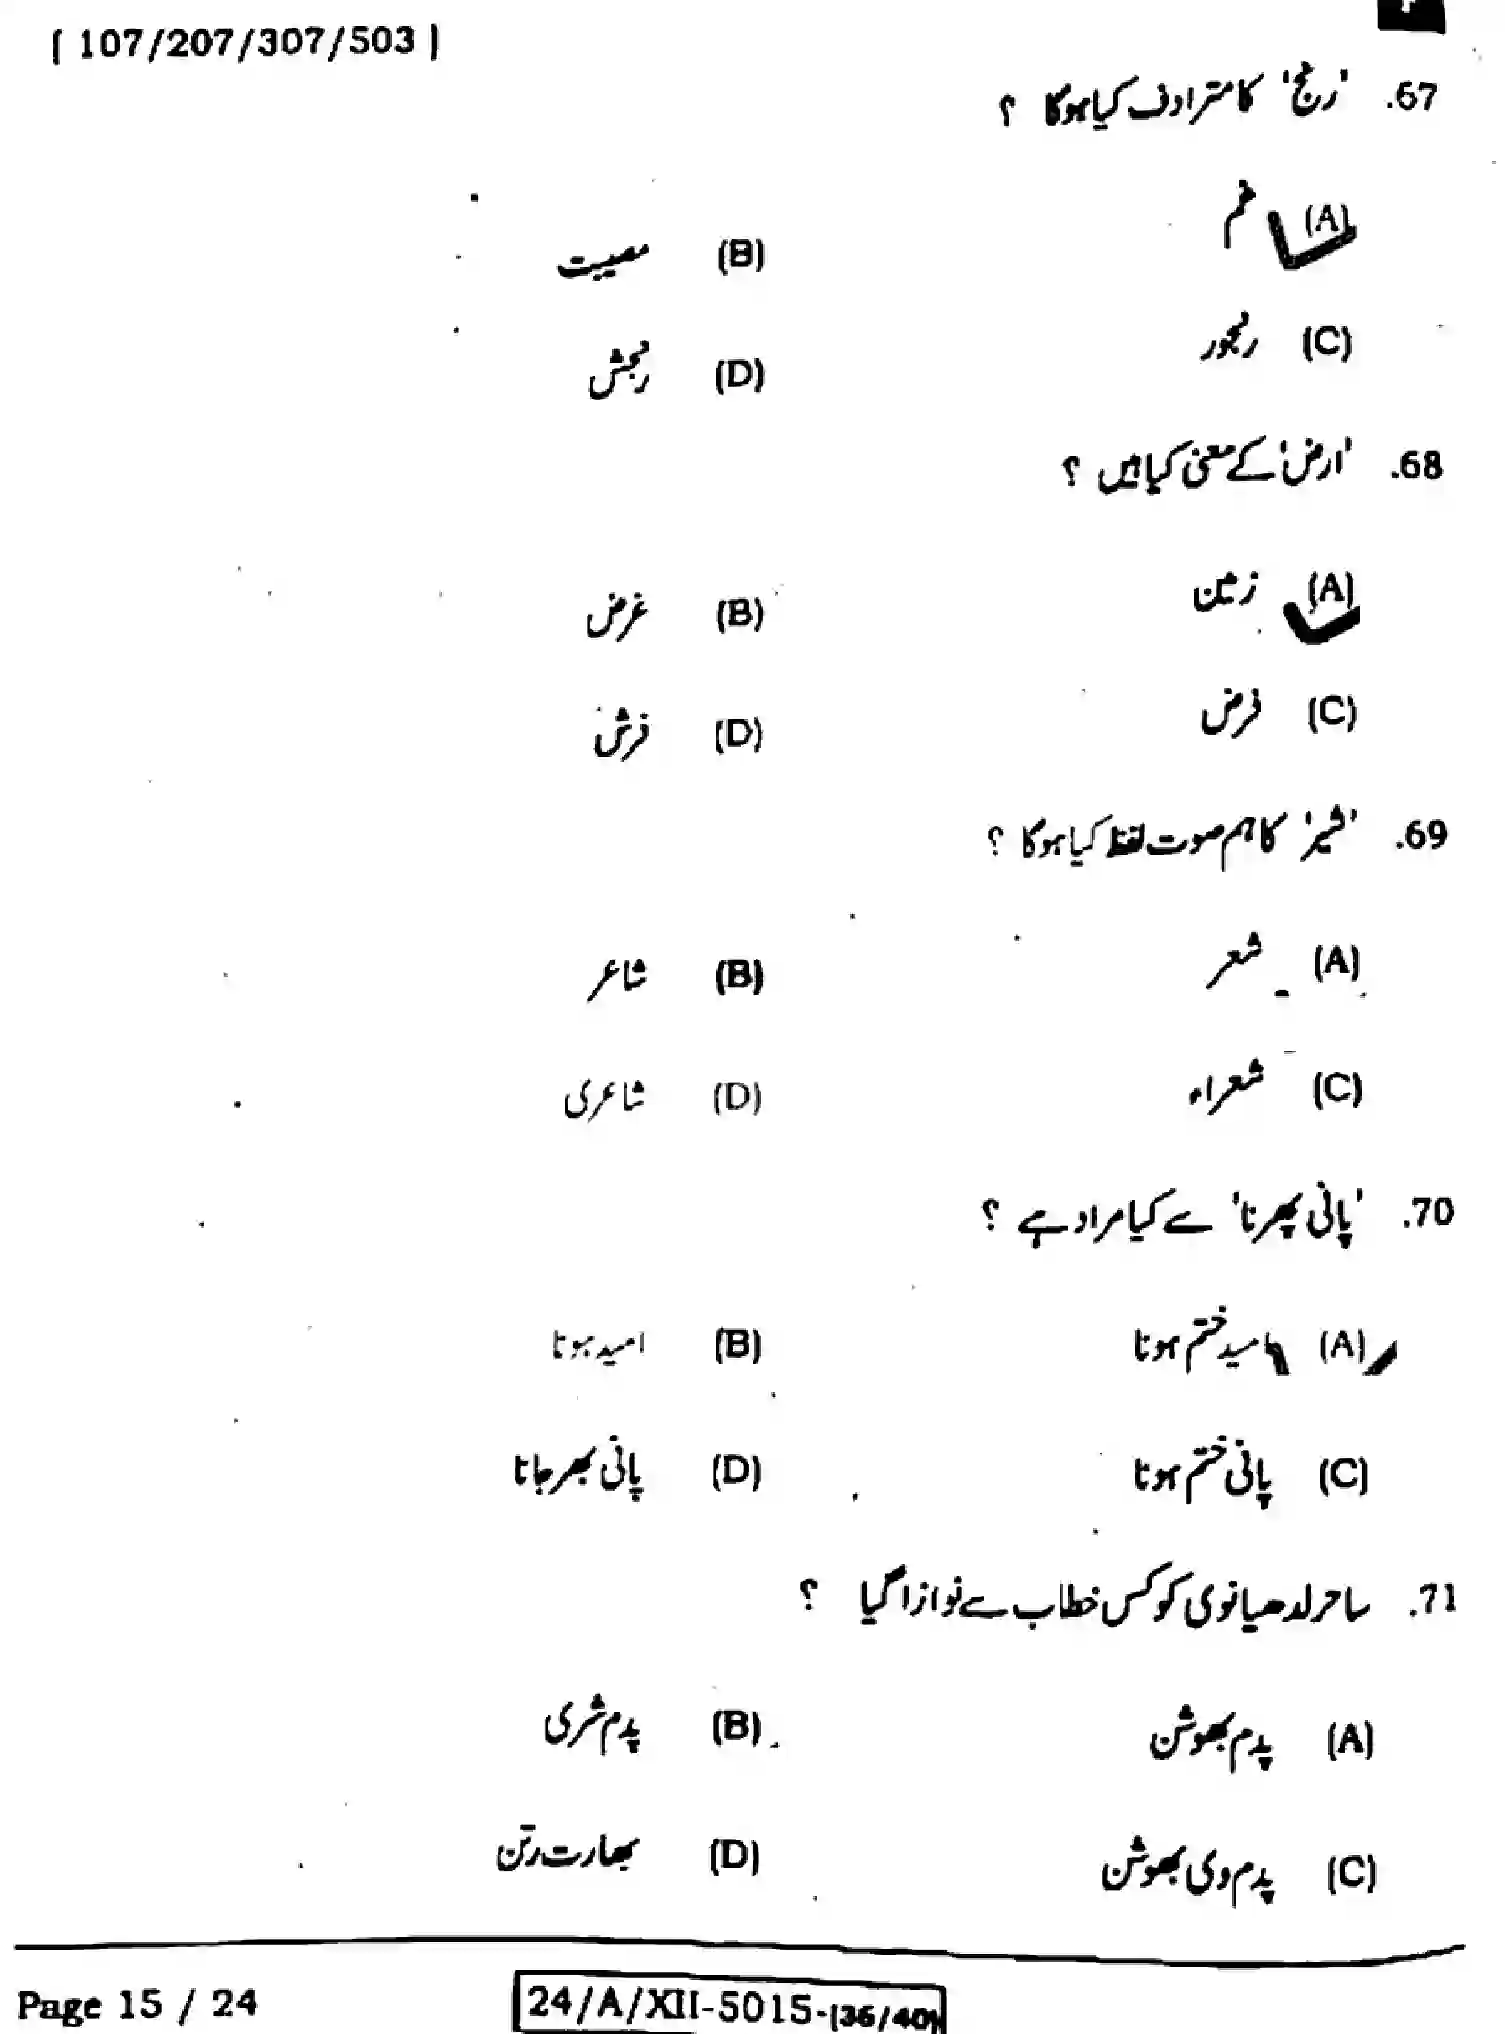 [ 107/207/307/503 ]
67. 'رنج' کا مترادف کیا ہوگا ؟
(A) غم
(B) مصیبت
(C) رنجور
(D) رنجش
68. 'ارض' کے معنی کیا ہیں ؟
(A) زمین
(B) غرض
(C) فرض
(D) فرش
69. 'شیر' کا ہم صوت لفظ کیا ہوگا ؟
(A) شعر
(B) شاعر
(C) شعراء
(D) شاعری
70. 'پانی پھرنا' سے کیا مراد ہے ؟
(A) امید ختم ہونا
(B) امید ہونا
(C) پانی ختم ہونا
(D) پانی بھر جانا
71. ساحر لدھیانوی کو کس خطاب سے نوازا گیا ؟
(A) پدم بھوشن
(B) پدم شری
(C) پدم وی بھوشن
(D) بھارت رتن
Page 15 / 24
24/A/XII-5015-(36/40)